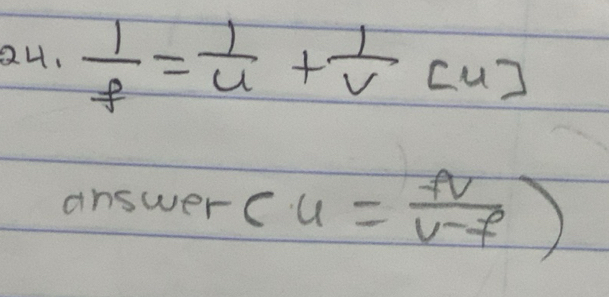 24. 1/f = 1/u + 1/v [u]
answer (u = fv/v-f)